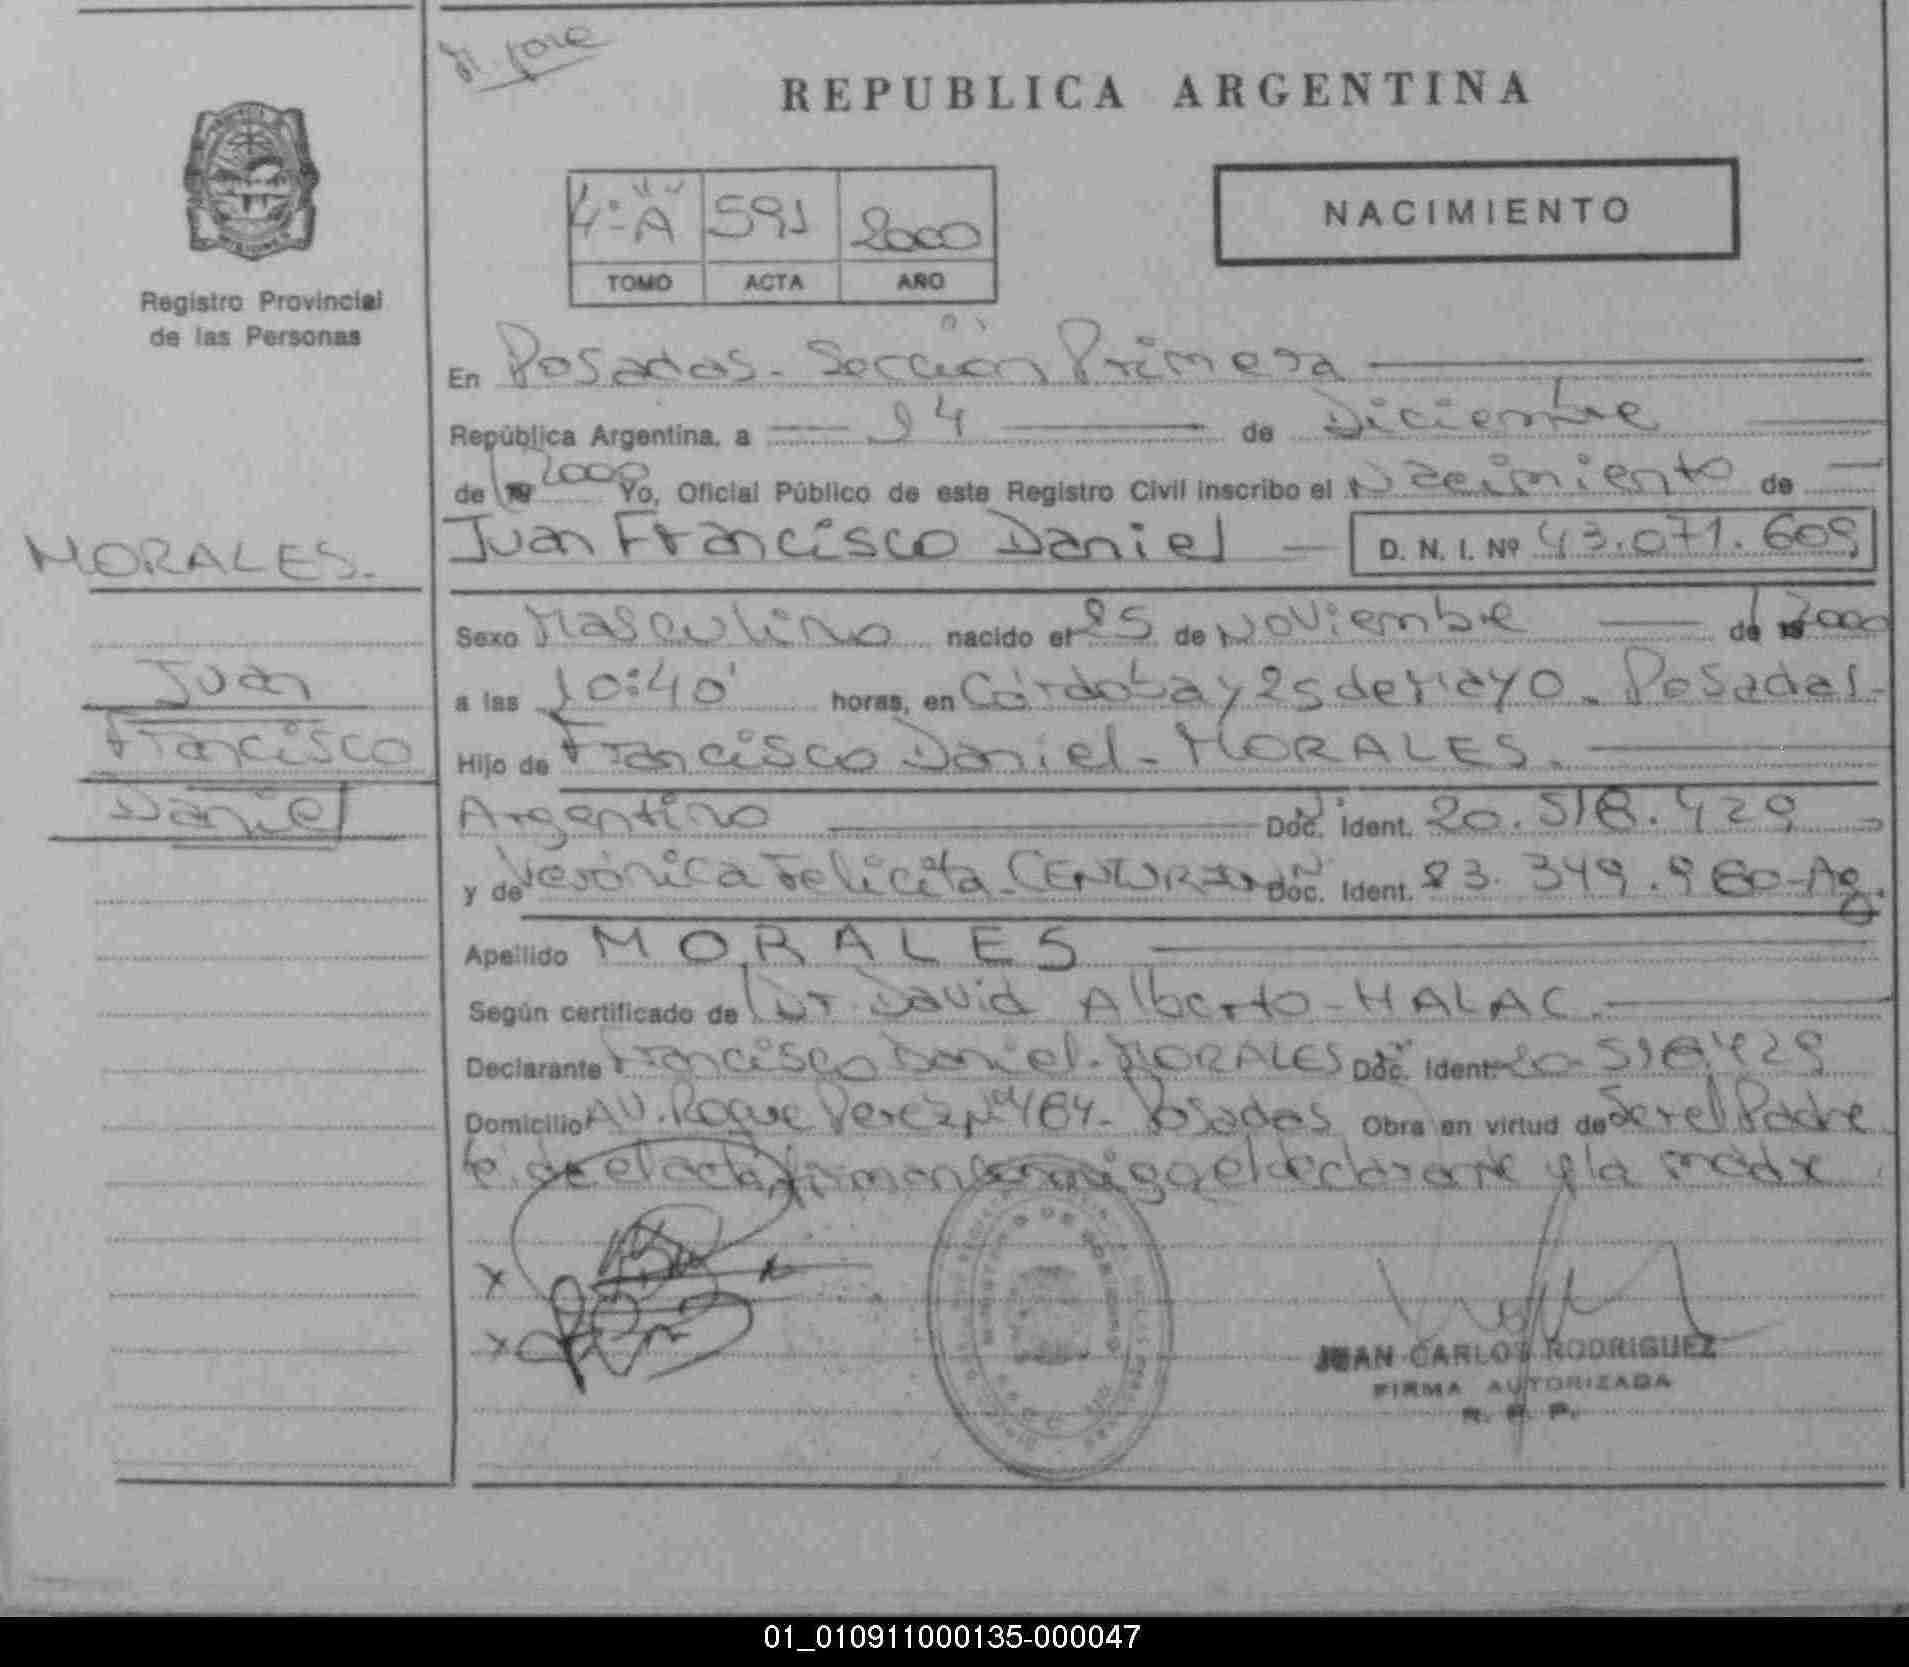 REPUBLICA ARGENTINA
4º "A" 591 2000
TOMO ACTA AÑO
NACIMIENTO
Registro Provincial
de las Personas
En Posadas - Sección Primera
República Argentina, a 14 de Diciembre
de 2000 Yo, Oficial Público de este Registro Civil inscribo el Nacimiento de
Juan Francisco Daniel D. N. I. Nº 43.071.609
MORALES.
Juan
Francisco
Daniel
Sexo Masculino nacido el 25 de Noviembre de 2000
a las 10:40' horas, en Córdoba y 25 de Mayo - Posadas -
Hijo de Francisco Daniel - MORALES.
Argentino Doc. Ident. 20.518.429
y de Verónica Felicita - CENTURION Doc. Ident. 23.349.960 - Ag.
Apellido MORALES
Según certificado de Dr. David Alberto - HALAC.
Declarante Francisco Daniel - MORALES Doc. Ident. 20.518.429
Domicilio AV. Roque Perez Nº 464 - Posadas Obra en virtud de Ser el Padre
el acta firman conmigo el declarante y la madre
JUAN CARLOS RODRIGUEZ
FIRMA AUTORIZADA
R. P. P.
01_010911000135-000047